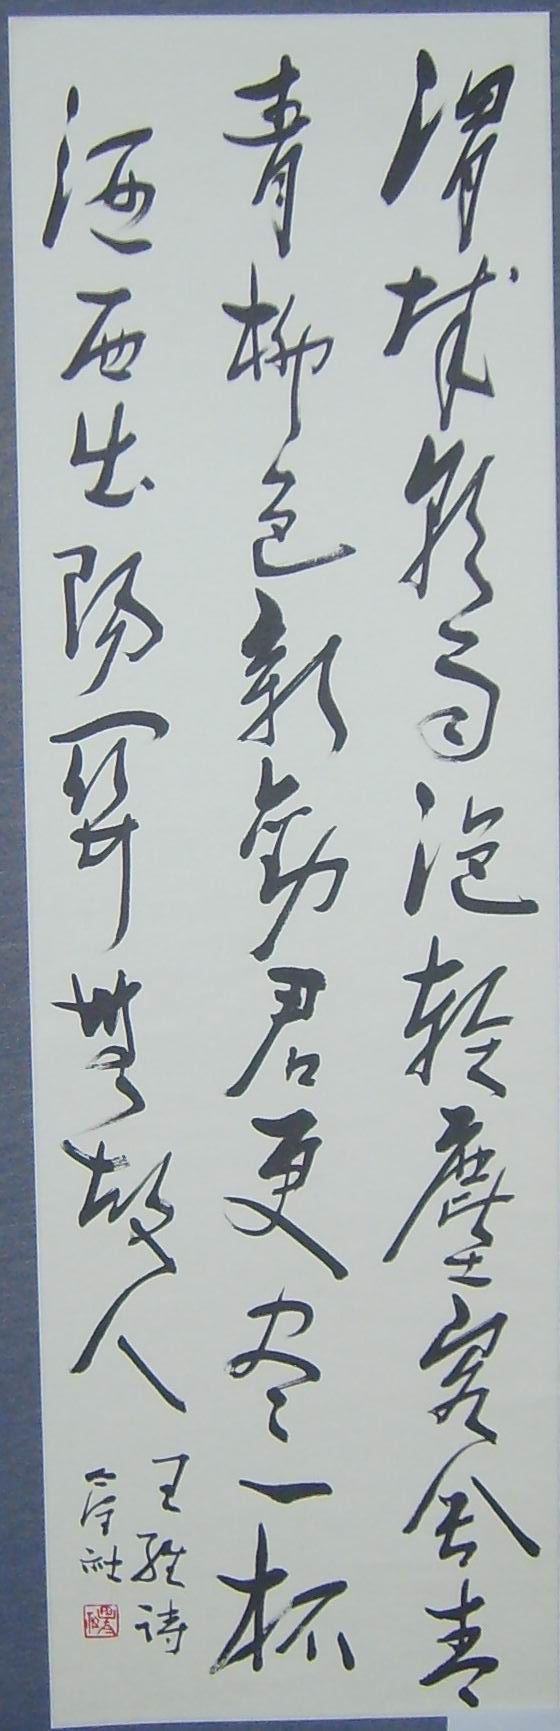 渭城朝雨浥輕塵客舍青
青柳色新勸君更尽一杯
酒西出陽關無故人
王維詩